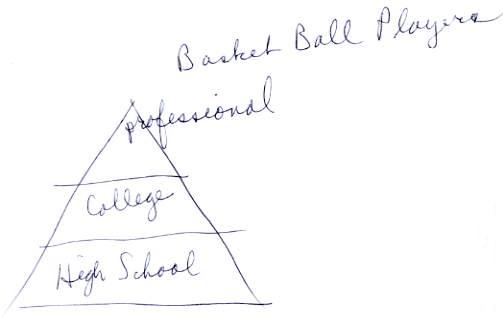 Basket Ball Players
professional
College
High School